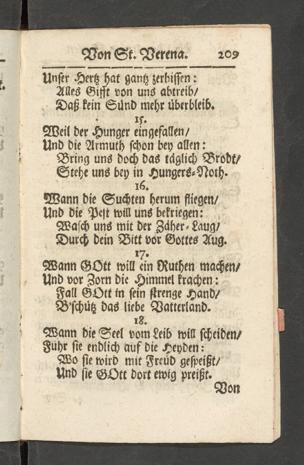 Von St. Verena. 209
Unser Hertz hat gantz zerbissen:
Alles Gifft von uns abtreib/
Daß kein Sünd mehr überbleib.
15.
Weil der Hunger eingefallen/
Und die Armuth schon bey allen:
Bring uns doch das täglich Brodt/
Stehe uns bey in Hungers-Noth.
16.
Wann die Suchten herum fliegen/
Und die Pest will uns bekriegen:
Wasch uns mit der Zäher-Laug/
Durch dein Bitt vor Gottes Aug.
17.
Wann GOtt will ein Ruthen machen/
Und vor Zorn die Himmel krachen:
Fall GOtt in sein strenge Hand/
B'schütz das liebe Vatterland.
18.
Wann die Seel vom Leib will scheiden/
Führ sie endlich auf die Heyden:
Wo sie wird mit Freud gespeißt/
Und sie GOtt dort ewig preißt.
Von